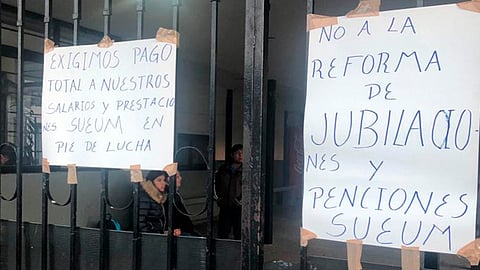 EXIGIMOS PAGO
TOTAL A NUESTROS
SALARIOS Y PRESTACIO
NES SUEUM EN
PIE DE LUCHA
NO A LA
REFORMA
DE
JUBILACIO-
NES Y
PENCIONES
SUEUM